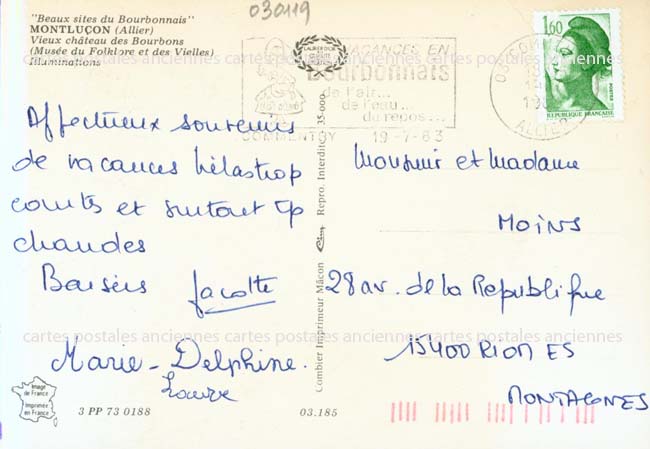 030119
"Beaux sites du Bourbonnais"
MONTLUÇON (Allier)
Vieux château des Bourbons
(Musée du Folklore et des Vielles)
Illuminations
VACANCES EN
Bourbonnais
de l'air...
de l'eau...
du repos...
COMMENTRY 19-7-83
03 COM
ALLIER
1,60
POSTES
REPUBLIQUE FRANÇAISE
Affectueux souvenirs
de vacances hélas trop
courtes et surtout tp
chaudes
Baisers Jacotte
Marie-Delphine.
Monsieur et Madame
MOINS
28 av. de la Republique
15400 RIOM ES
MONTAGNES
Combier Imprimeur Mâcon
Repro. Interdite 35.000
cartes postales anciennes cartes postales anciennes cartes postales anciennes
Image
de France
Imprimée
en France
3 PP 73 0188
03.185